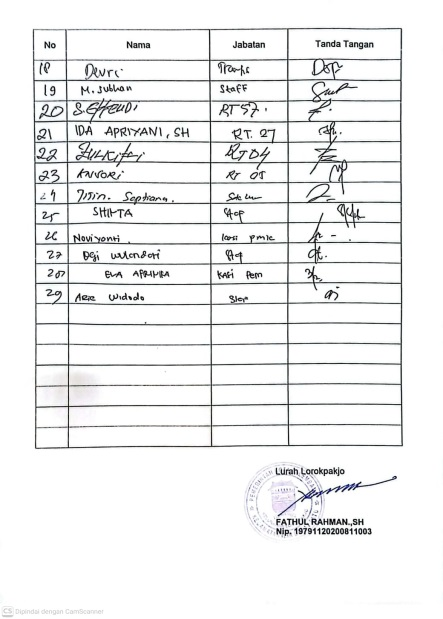 No Nama Jabatan Tanda Tangan
18 Devri
19 M. Subhan Staff
20 S. Effendi RT 57.
21 IDA APRIYANI, SH RT. 27
22 ZULKIFLI RT 04
23 ANSORI RT 05
24 Septiana.
25 SHINTA Stap
26 Noviyanti. kasi pmk
27 Egi wulandari Stap
28 ELA APRIMIRA Kasi Pem
29 Arie Widodo Stap
Lurah Lorokpakjo
FATHUL RAHMAN.,SH
Nip. 19791120200811003
CS Dipindai dengan CamScanner